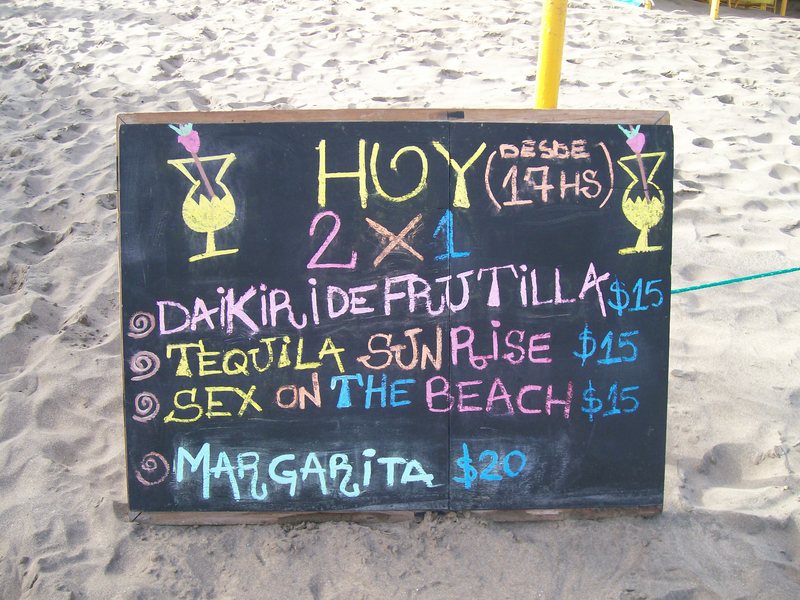 HOY (DESDE 17HS)
2x1
DAiKiRi DE FRUTiLLA $15
TEQUiLA SUNRiSE $15
SEX ON THE BEACH $15
MARGARiTA $20